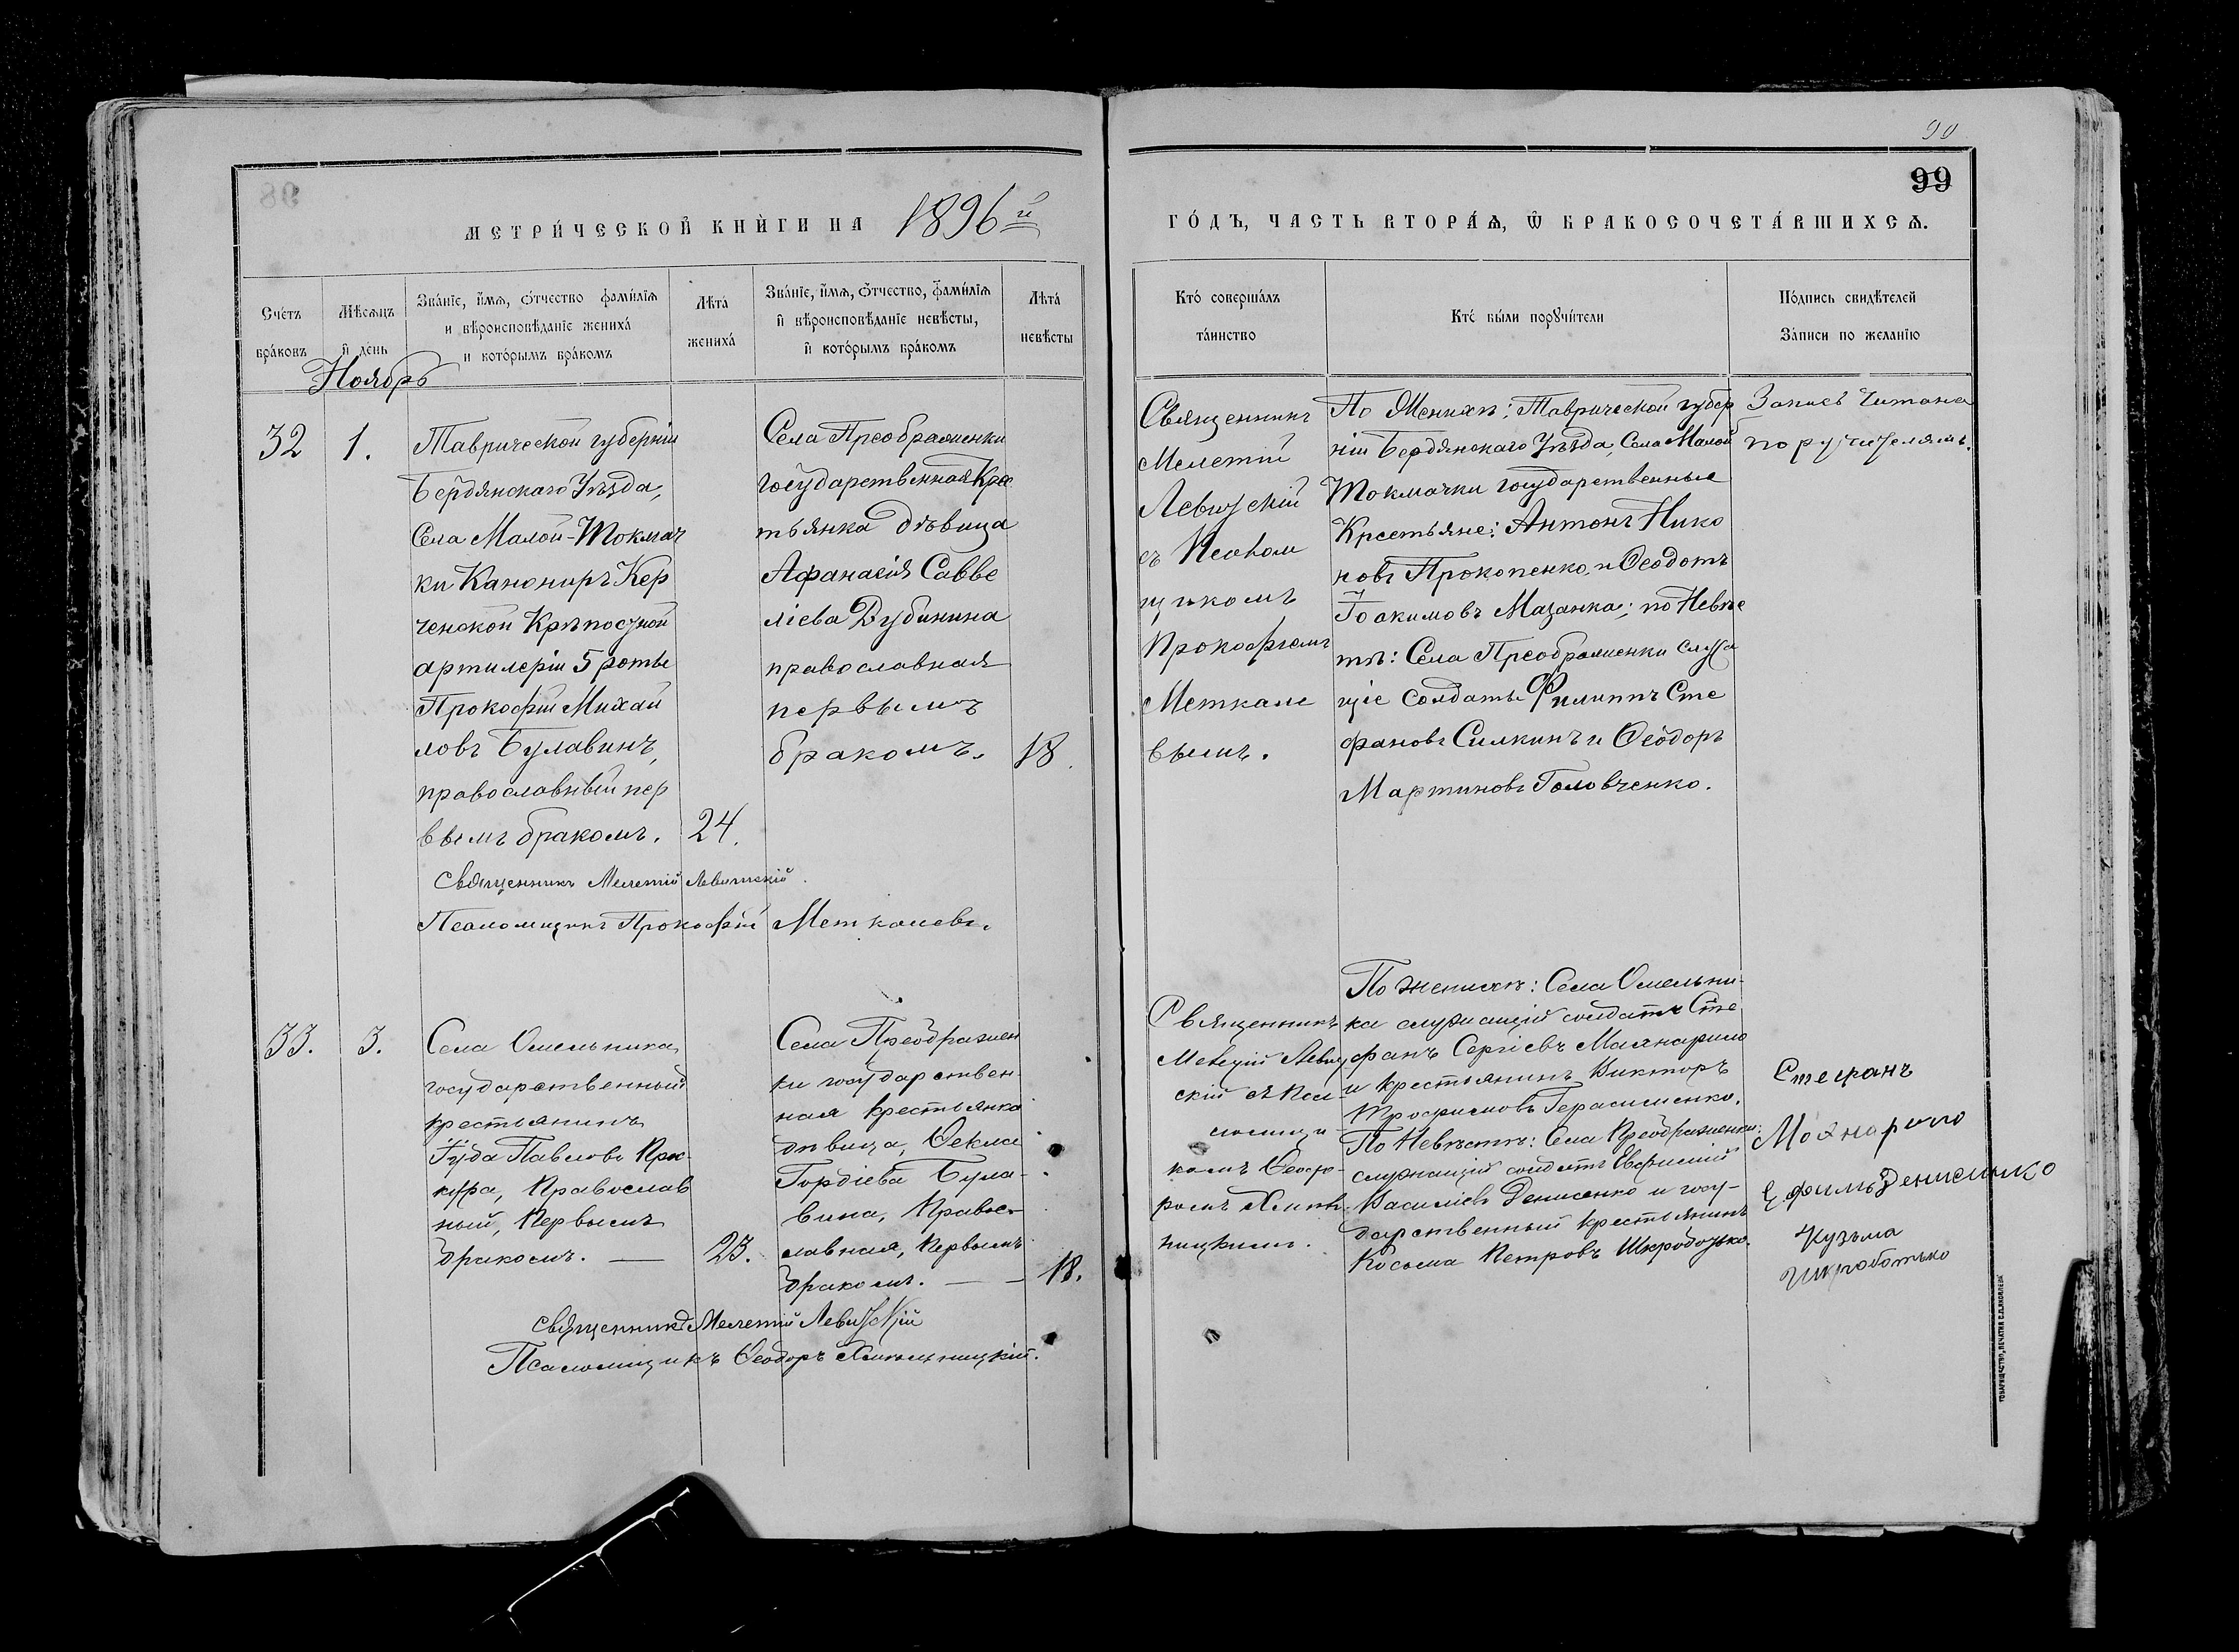 90
99
98
МЕТРИ́ЧЕСКОЙ КНИ́ГИ НА 1896й
ГО́ДЪ, ЧАСТЬ ВТОРА́Ѧ, Ѽ БРАКОСОЧЕТА́ВШИХСѦ.
Сче́тъ
бра́ковъ
Мѣ́сѧцъ
и҆ де́нь
Зва́нїе, и҆́мѧ, о҆́тчество фамі́лїѧ
и вѣроисповѣ́данїе жениха́
и кото́рымъ бра́комъ
Лѣта́
жениха́
Зва́нїе, и҆́мѧ, о҆́тчество, фамі́лїѧ
и҆ вѣроисповѣ́данїе невѣ́сты,
и҆ кото́рымъ бра́комъ
Лѣта́
невѣ́сты
Кто́ соверша́лъ
та́инство
Кто́ бы́ли порꙋчи́тели
По́дпись свидѣ́телей
За́писи по жела́нїю
Ноябрь
32
1.
Таврической губерніи
Бердянскаго Уѣзда,
Села Малой-Токмач
ки Канониръ Кер
ченской Крѣпостной
артилеріи 5 роты
Прокофій Михай
ловъ Булавинъ,
православный пер
вымъ бракомъ.
24.
Села Преображенки
государственная Крес
тьянка дѣвица
Афанасія Савве
ліева Дубинина
православная
первымъ
бракомъ.
18.
Священникъ Мелетій Левитскій.
Псаломщикъ Прокофій Меткалевъ.
Священникъ
Мелетій
Левитскій
съ Псалом
щикомъ
Прокофіемъ
Меткале
вымъ.
По Женихѣ: Таврической губер
ніи Бердянскаго Уѣзда, Села Малой
Токмачки государственные
Крестьяне: Антонъ Нико
новъ Прокопенко, и Ѳеодотъ
Іоакимовъ Мазанка; по Невѣс
тѣ: Села Преображенки служа
щіе Солдаты Филиппъ Сте
фановъ Силкинъ и Ѳеодоръ
Мартиновъ Головченко.
Запись читана
поручителямъ.
33.
3.
Села Омельника,
государственный
крестьянинъ
Іуда Павловъ
Православ
ный, Первымъ
бракомъ. —
23.
Села Преображен
ки государствен-
ная крестьянка
дѣвица, Ѳекла
Гордіева Була-
вина, Правос-
лавная, Первымъ
бракомъ. —
18.
Священникъ Мелетій Левитскій
Псаломщикъ Ѳеодоръ Хмельницкій.
Священникъ
Мелетій Левит
скій съ Пса-
ломщи-
комъ Ѳеодо-
ромъ Хмель-
ницкимъ.
По женихѣ: Села Омельни-
ка служащій солдатъ Сте
фанъ Сергіевъ Маянарило
и крестьянинъ Викторъ
Трофимовъ Герасименко.
По Невѣстѣ: Села Преображенки:
служащій солдатъ Евфимій
Василіевъ Денисенко и госу-
дарственный крестьянинъ
Косьма Петровъ Шкрободько.
Стефанъ
Ефимъ Денисенко
Кузьма
ТОВАРИЩЕСТВО „ПЕЧАТНЯ С.П.ЯКОВЛЕВА“